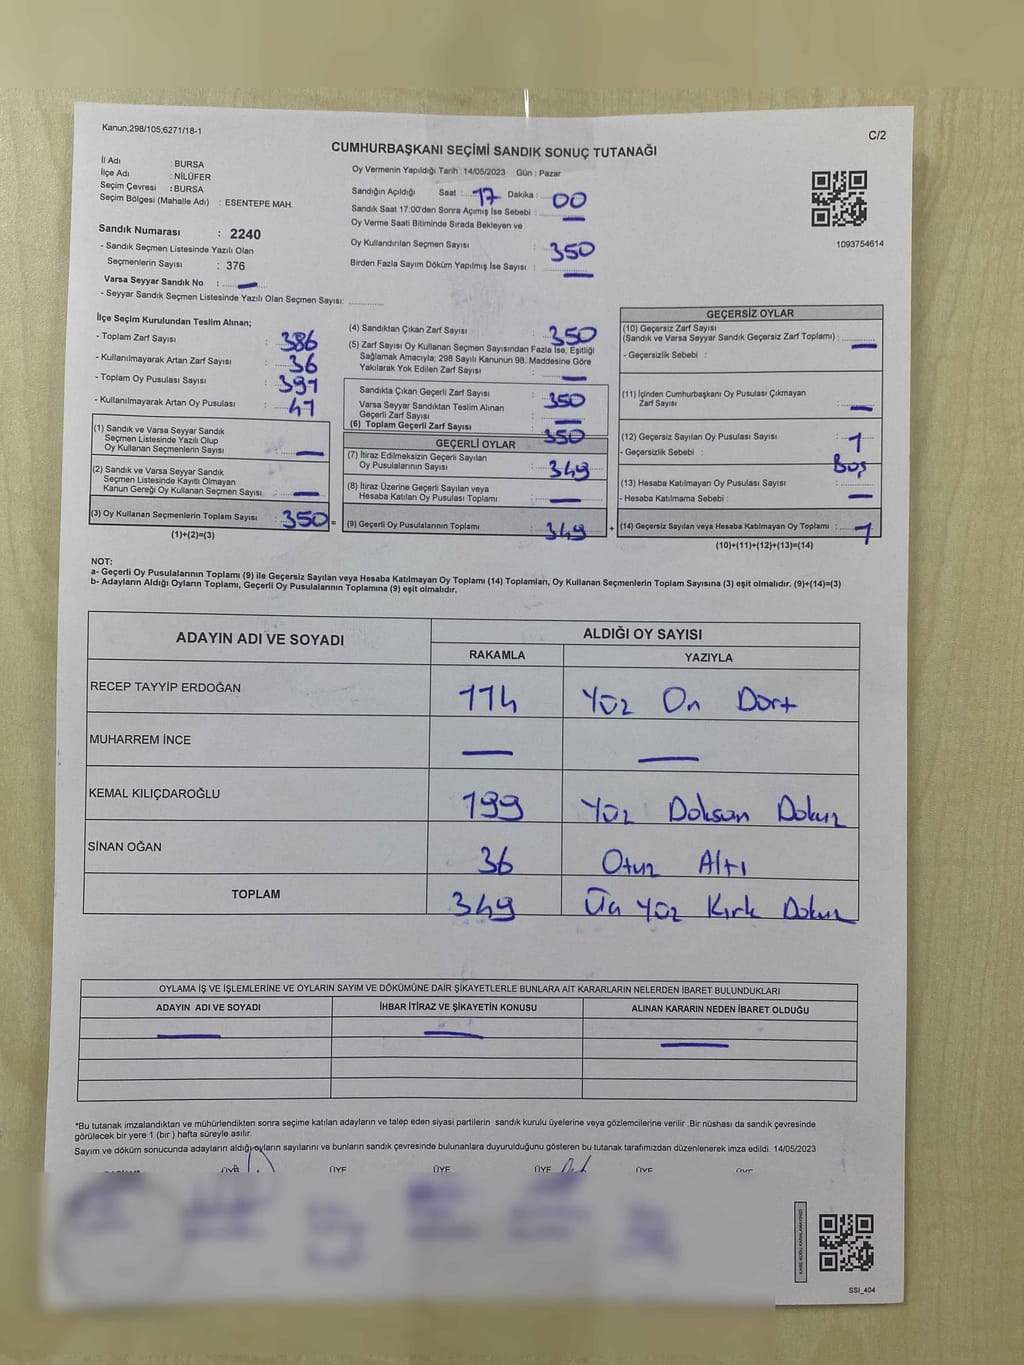 Kanun;298/105;6271/18-1
C/2
CUMHURBAŞKANI SEÇİMİ SANDIK SONUÇ TUTANAĞI
İl Adı : BURSA
İlçe Adı : NİLÜFER
Seçim Çevresi : BURSA
Seçim Bölgesi (Mahalle Adı) : ESENTEPE MAH.
Sandık Numarası : 2240
- Sandık Seçmen Listesinde Yazılı Olan
Seçmenlerin Sayısı : 376
Varsa Seyyar Sandık No : —
- Seyyar Sandık Seçmen Listesinde Yazılı Olan Seçmen Sayısı: ............
Oy Vermenin Yapıldığı Tarih : 14/05/2023 Gün : Pazar
Sandığın Açıldığı Saat : 17 Dakika : 00
Sandık Saat 17:00'den Sonra Açımış İse Sebebi : —
Oy Verme Saati Bitiminde Sırada Bekleyen ve
Oy Kullandırılan Seçmen Sayısı : 350
Birden Fazla Sayım Döküm Yapılmış İse Sayısı : —
1093754614
İlçe Seçim Kurulundan Teslim Alınan;
- Toplam Zarf Sayısı : 386
- Kullanılmayarak Artan Zarf Sayısı : 36
- Toplam Oy Pusulası Sayısı : 397
- Kullanılmayarak Artan Oy Pusulası : 47
(1) Sandık ve Varsa Seyyar Sandık
Seçmen Listesinde Yazılı Olup
Oy Kullanan Seçmenlerin Sayısı : —
(2) Sandık ve Varsa Seyyar Sandık
Seçmen Listesinde Kayıtlı Olmayan
Kanun Gereği Oy Kullanan Seçmen Sayısı : —
(3) Oy Kullanan Seçmenlerin Toplam Sayısı : 350 =
(1)+(2)=(3)
(4) Sandıktan Çıkan Zarf Sayısı : 350
(5) Zarf Sayısı Oy Kullanan Seçmen Sayısından Fazla İse, Eşitliği
Sağlamak Amacıyla; 298 Sayılı Kanunun 98. Maddesine Göre
Yakılarak Yok Edilen Zarf Sayısı : —
Sandıkta Çıkan Geçerli Zarf Sayısı : 350
Varsa Seyyar Sandıktan Teslim Alınan
Geçerli Zarf Sayısı : —
(6) Toplam Geçerli Zarf Sayısı : 350
GEÇERLİ OYLAR
(7) İtiraz Edilmeksizin Geçerli Sayılan
Oy Pusulalarının Sayısı : 349
(8) İtiraz Üzerine Geçerli Sayılan veya
Hesaba Katılan Oy Pusulası Toplamı : —
(9) Geçerli Oy Pusulalarının Toplamı : 349 +
GEÇERSİZ OYLAR
(10) Geçersiz Zarf Sayısı
(Sandık ve Varsa Seyyar Sandık Geçersiz Zarf Toplamı) : —
- Geçersizlik Sebebi :
(11) İçinden Cumhurbaşkanı Oy Pusulası Çıkmayan
Zarf Sayısı : —
(12) Geçersiz Sayılan Oy Pusulası Sayısı : 1
- Geçersizlik Sebebi : Boş
(13) Hesaba Katılmayan Oy Pusulası Sayısı :
- Hesaba Katılmama Sebebi : —
(14) Geçersiz Sayılan veya Hesaba Katılmayan Oy Toplamı : 1
(10)+(11)+(12)+(13)=(14)
NOT:
a- Geçerli Oy Pusulalarının Toplamı (9) ile Geçersiz Sayılan veya Hesaba Katılmayan Oy Toplamı (14) Toplamları, Oy Kullanan Seçmenlerin Toplam Sayısına (3) eşit olmalıdır. (9)+(14)=(3)
b- Adayların Aldığı Oyların Toplamı, Geçerli Oy Pusulalarının Toplamına (9) eşit olmalıdır.
ADAYIN ADI VE SOYADI ALDIĞI OY SAYISI
RAKAMLA YAZIYLA
RECEP TAYYİP ERDOĞAN 114 Yüz On Dört
MUHARREM İNCE — —
KEMAL KILIÇDAROĞLU 199 Yüz Doksan Dokuz
SİNAN OĞAN 36 Otuz Altı
TOPLAM 349 Üç Yüz Kırk Dokuz
OYLAMA İŞ VE İŞLEMLERİNE VE OYLARIN SAYIM VE DÖKÜMÜNE DAİR ŞİKAYETLERLE BUNLARA AİT KARARLARIN NELERDEN İBARET BULUNDUKLARI
ADAYIN ADI VE SOYADI İHBAR İTİRAZ VE ŞİKAYETİN KONUSU ALINAN KARARIN NEDEN İBARET OLDUĞU
— — —
*Bu tutanak imzalandıktan ve mühürlendikten sonra seçime katılan adayların ve talep eden siyasi partilerin sandık kurulu üyelerine veya gözlemcilerine verilir .Bir nüshası da sandık çevresinde
görülecek bir yere 1 (bir ) hafta süreyle asılır.
Sayım ve döküm sonucunda adayların aldığı oyların sayılarını ve bunların sandık çevresinde bulunanlara duyurulduğunu gösteren bu tutanak tarafımızdan düzenlenerek imza edildi. 14/05/2023
ÜYE ÜYE ÜYE ÜYE ÜYE ÜYE
SSI_404